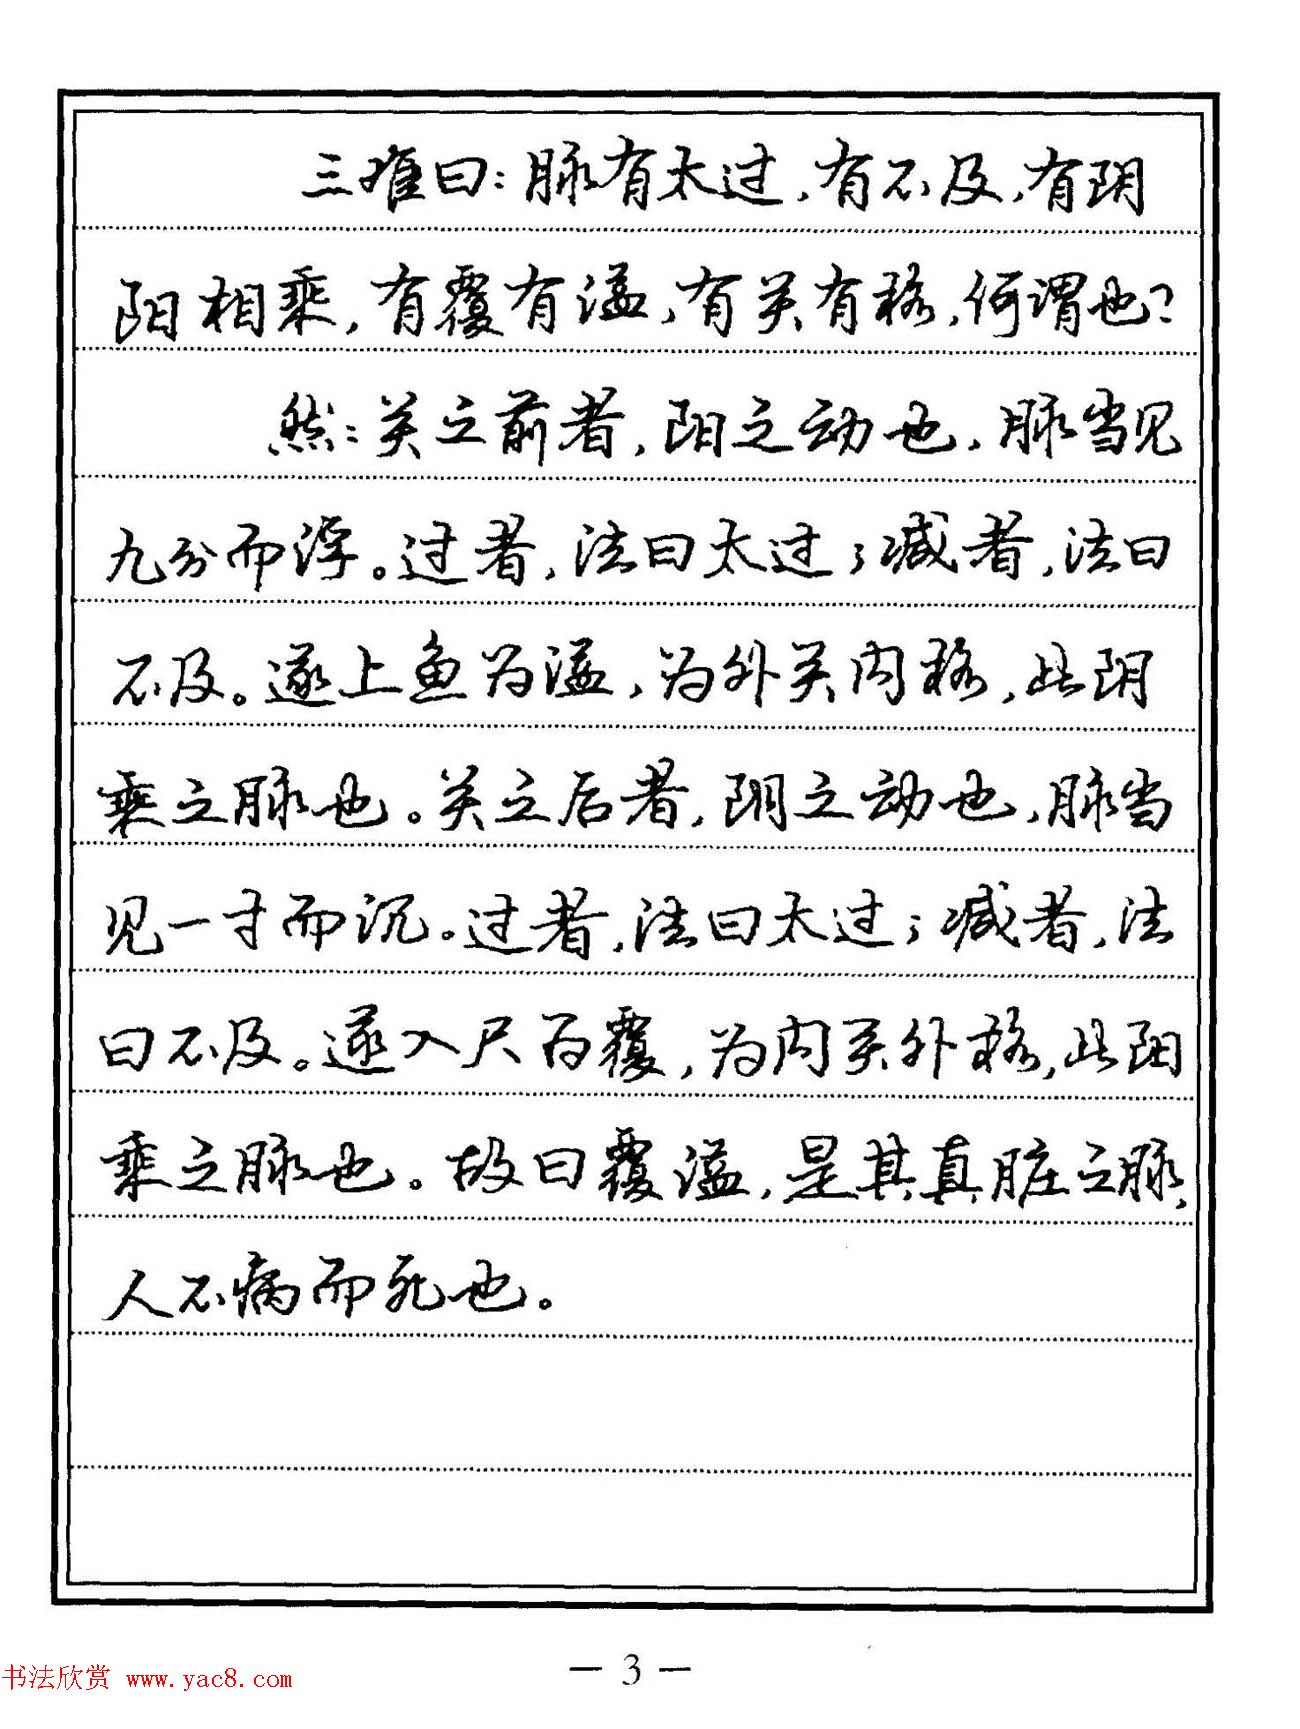 三难曰：脉有太过，有不及，有阴
阳相乘，有覆有溢，有关有格，何谓也？
然：关之前者，阳之动也，脉当见
九分而浮。过者，法曰太过；减者，法曰
不及。遂上鱼为溢，为外关内格，此阴
乘之脉也。关之后者，阴之动也，脉当
见一寸而沉。过者，法曰太过；减者，法
曰不及。遂入尺为覆，为内关外格，此阳
乘之脉也。故曰覆溢，是其真脏之脉，
人不病而死也。
— 3 —
书法欣赏 www.yac8.com